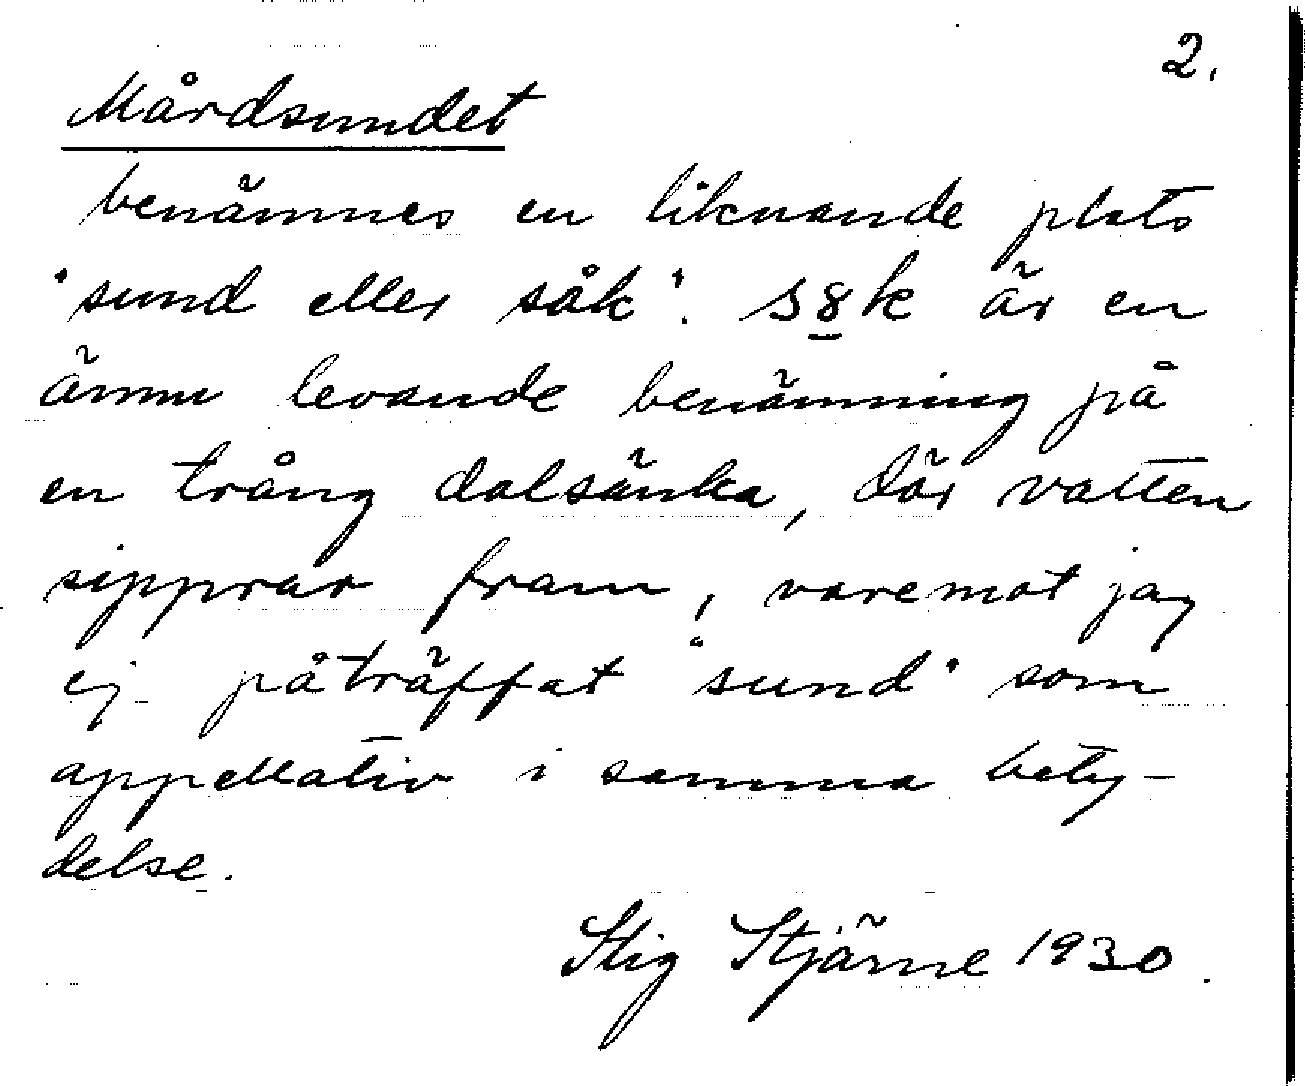 2.
Mårdsundet
benämnes en liknande plats
"sund eller såk". s8k är en
ännu levande benämning på
en trång dalsänka, där vatten
sipprar fram, varemot jag
ej påträffat "sund" som
appellativ i samma bety-
delse.
Stig Stjärne 1930.